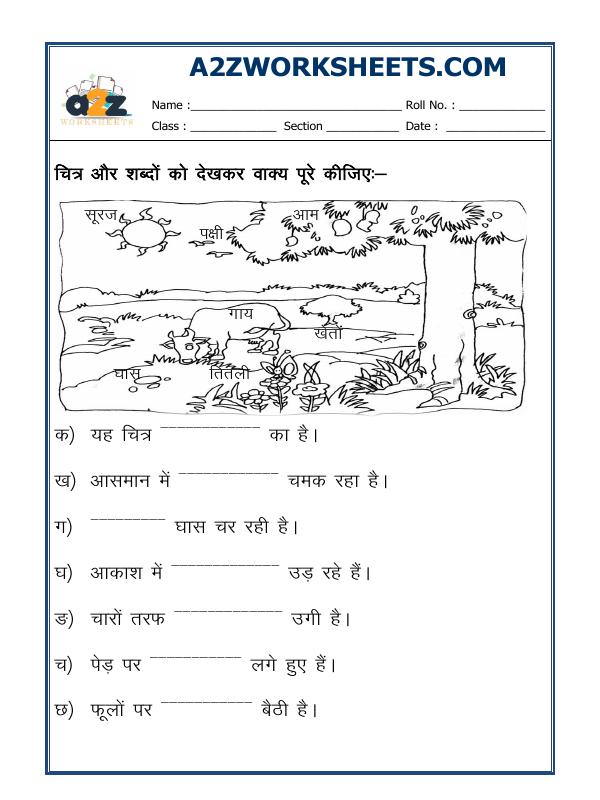 A2ZWORKSHEETS.COM
a2z
WORKSHEETS
Name :________________________________ Roll No. : _____________
Class : _____________ Section ___________ Date : _______________
चित्र और शब्दों को देखकर वाक्य पूरे कीजिए:–
सूरज
पक्षी
आम
गाय
खेतों
घास
तितली
क) यह चित्र ____________ का है।
ख) आसमान में ____________ चमक रहा है।
ग) _________ घास चर रही है।
घ) आकाश में _____________ उड़ रहे हैं।
ङ) चारों तरफ _____________ उगी है।
च) पेड़ पर ___________ लगे हुए हैं।
छ) फूलों पर ___________ बैठी है।